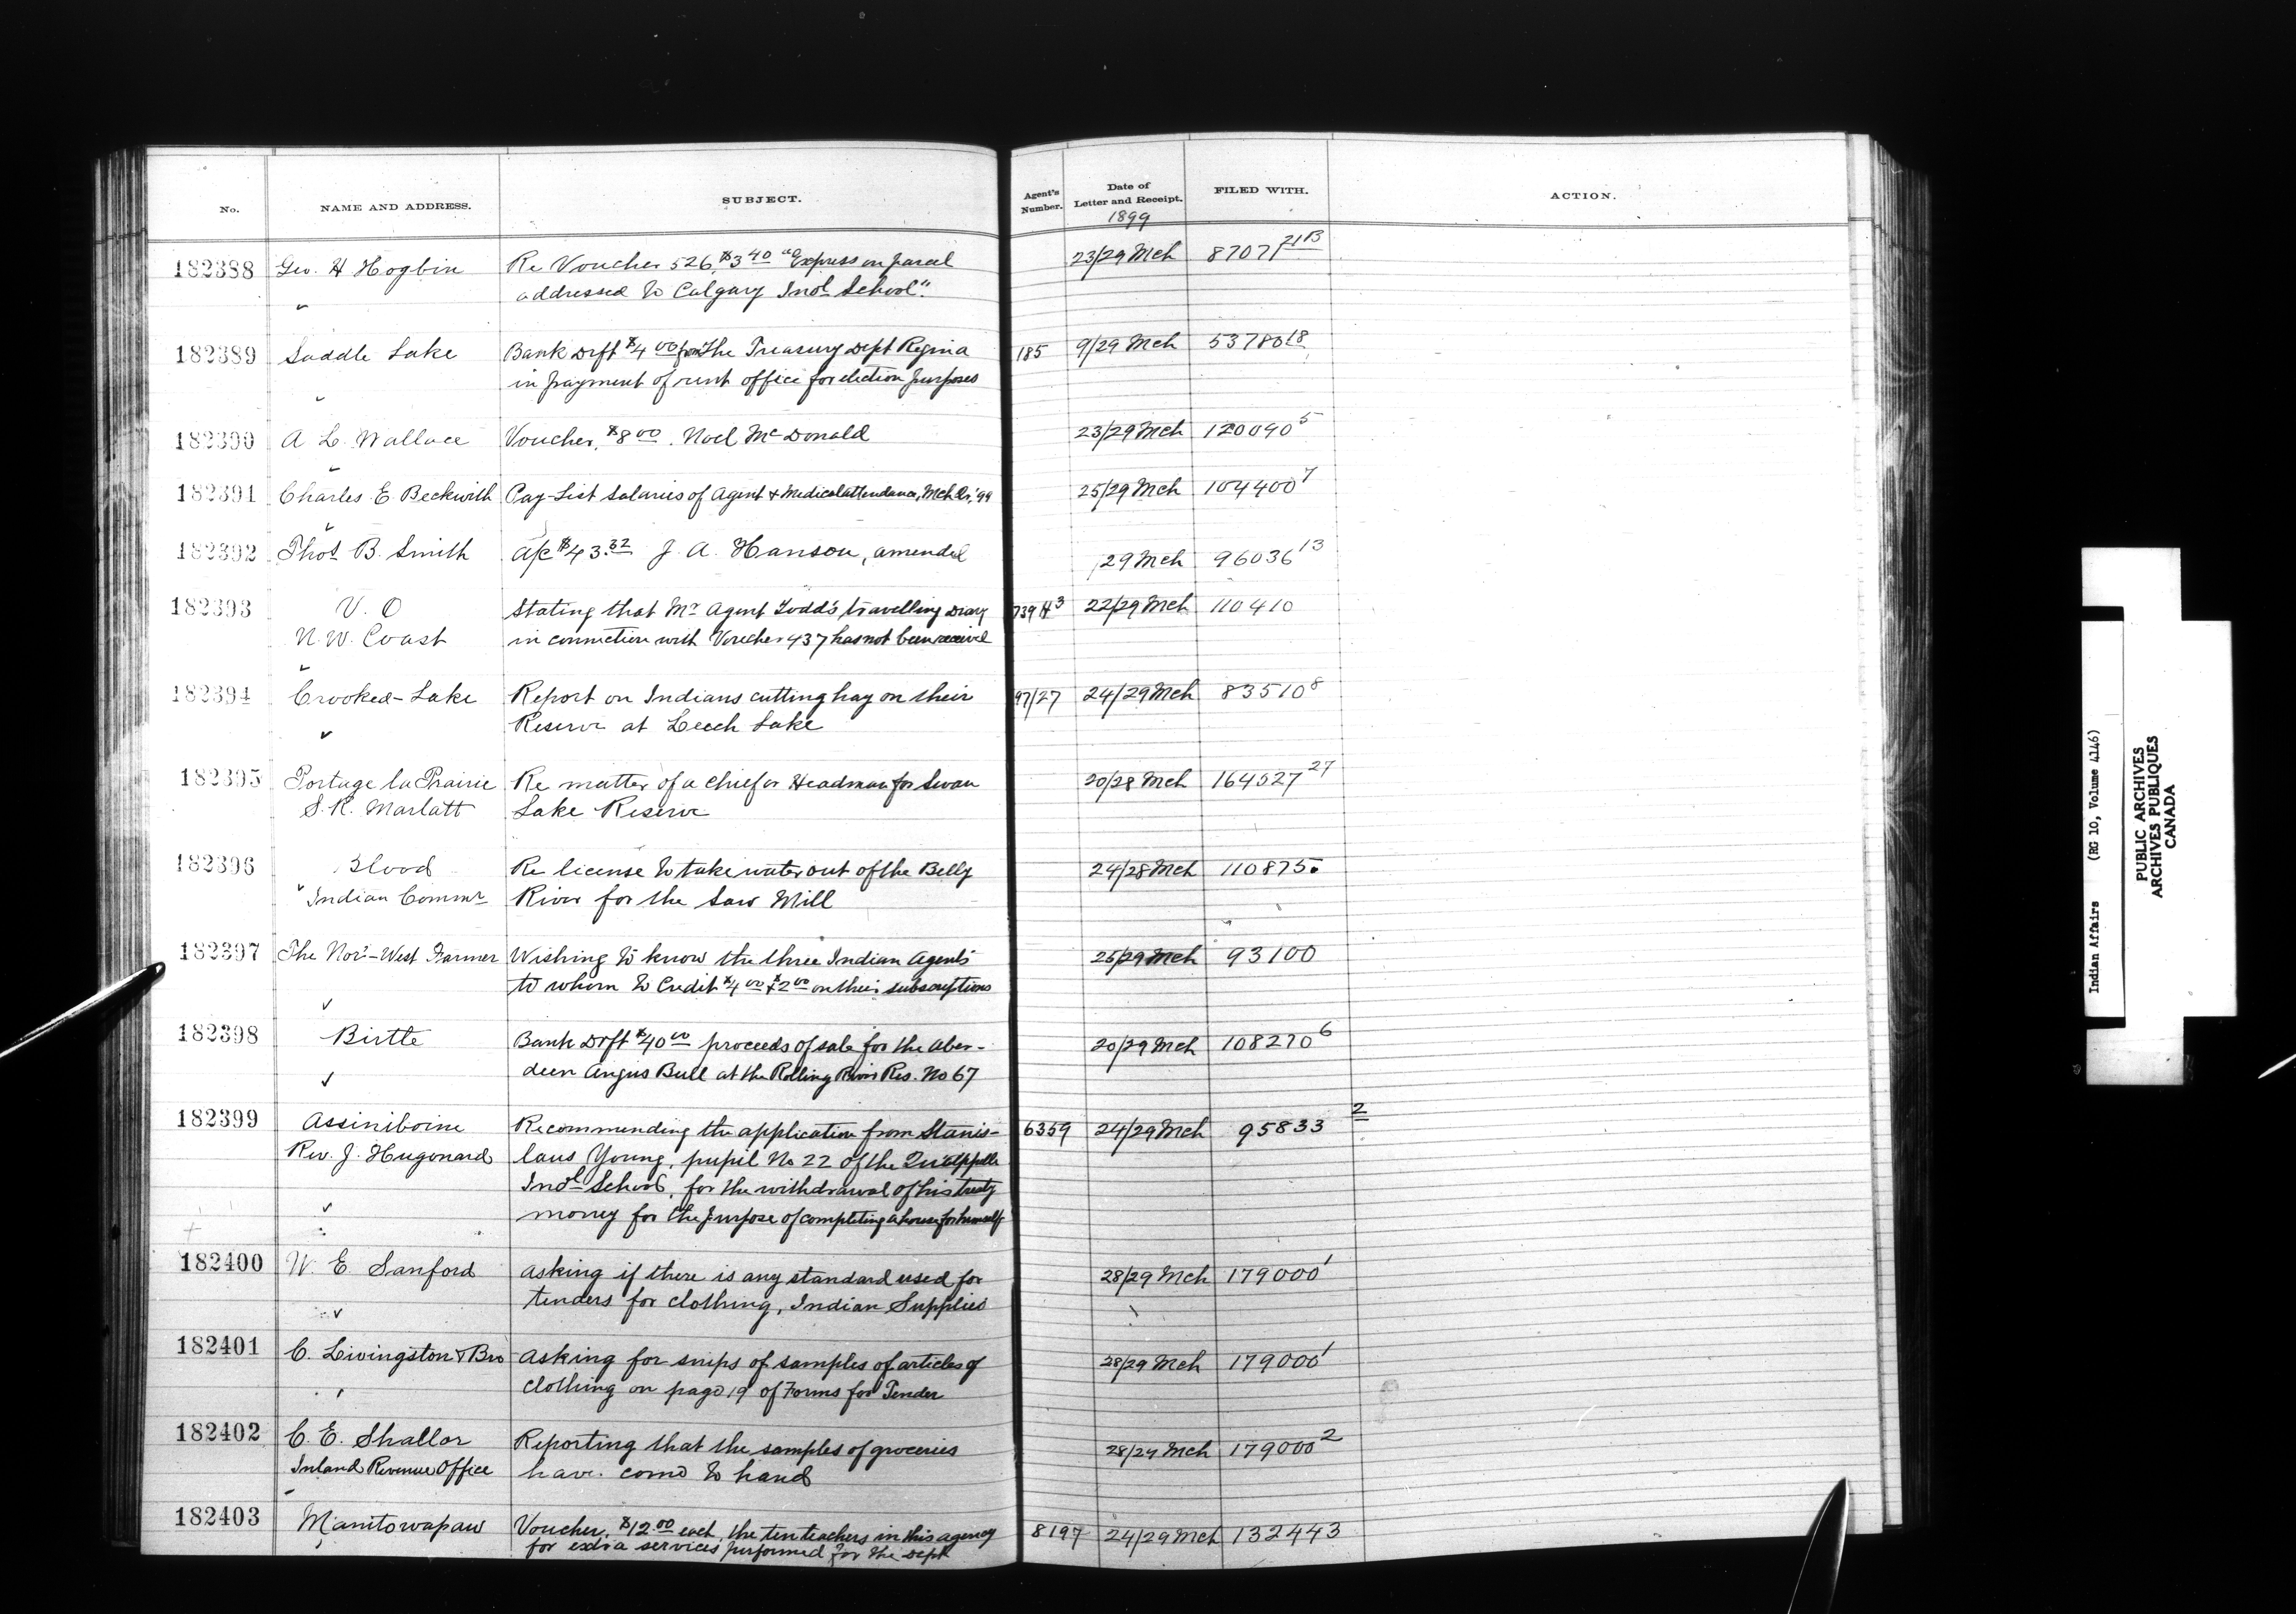 No. NAME AND ADDRESS. SUBJECT. Agent's Number. Date of Letter and Receipt. FILED WITH. ACTION.
1899
182388 Geo. H Hogbin Re Voucher 526, $3 40 "Express on parcel 23/29 Mch 87077 21B
addressed to Calgary Indl School".
182389 Saddle Lake Bank Drft $4 00 from The Treasury Dept Regina 185 9/29 Mch 53780 18
in payment of rent office for election purposes
182390 A L. Wallace Voucher, $8 00. Noel McDonald 23/29 Mch 120090 5
182391 Charles E Beckwith Pay-List Salaries of Agent & Medical attendance, Mch Qr. '99 25/29 Mch 104400 7
182392 Thos B. Smith A/c $43.32 J. A. Hanson, amended 29 Mch 96036 13
182393 V. O Stating that Mr Agent Todd's travelling Diary 739 H 3 22/29 Mch 110410
N. W. Coast in connection with Voucher 437 has not been received
182394 Crooked-Lake Report on Indians cutting hay on their 97/27 24/29 Mch 83510 8
Reserve at Leech Lake
182395 Portage la Prairie Re matter of a Chief or Headman for Swan 20/28 Mch 164527 27
S. R. Marlatt Lake Reserve
182396 Blood Re license to take water out of the Belly 24/28 Mch 110875
Indian Commr River for the Saw Mill
182397 The Nor'-West Farmer Wishing to know the three Indian Agents 25/29 Mch 93100
to whom to Credit $4 00 & $2 00 on their subscriptions
182398 Birtle Bank Drft $40 00 proceeds of sale for the Aber- 20/29 Mch 108270 6
deen Angus Bull at the Rolling River Res. No 67
182399 Assiniboine Recommending the application from Stanis- 6359 24/29 Mch 95833 2
Rev. J. Hugonard laus Young, pupil No 22 of the Qu'Appelle
Indl School, for the withdrawal of his treaty
money for the purpose of completing a house for himself
182400 W. E. Sanford Asking if there is any standard used for 28/29 Mch 179000 1
tenders for clothing, Indian Supplies
182401 C. Livingston & Bro Asking for snips of samples of articles of 28/29 Mch 179000 1
clothing on page 19 of Forms for Tender
182402 C. E. Shallor Reporting that the samples of groceries 28/29 Mch 179000 2
Inland Revenue Office have come to hand
182403 Manitowapaw Voucher, $12.00 each, the ten teachers in this agency 8197 24/29 Mch 132443
for extra services performed for the Dept
Indian Affairs (RG 10, Volume 4146)
PUBLIC ARCHIVES
ARCHIVES PUBLIQUES
CANADA